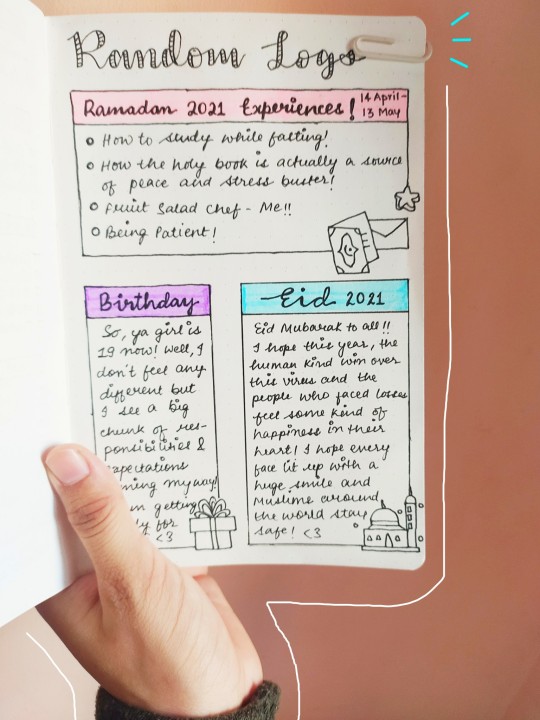 Random Logs
Ramadan 2021 Experiences!
14 April-
13 May
How to study while fasting!
How the holy book is actually a source
of peace and stress buster!
Fruit Salad Chef - Me!!
Being Patient!
Birthday
So, ya girl is
19 now! Well, I
don't feel any
different but
I see a big
chunk of res-
ponsibilities &
my way!
getting
for
<3
Eid 2021
Eid Mubarak to all!!
I hope this year, the
human kind win over
this virus and the
people who faced losses
feel some kind of
happiness in their
heart! I hope every
face lit up with a
huge smile and
Muslims around
the world stay
safe! <3